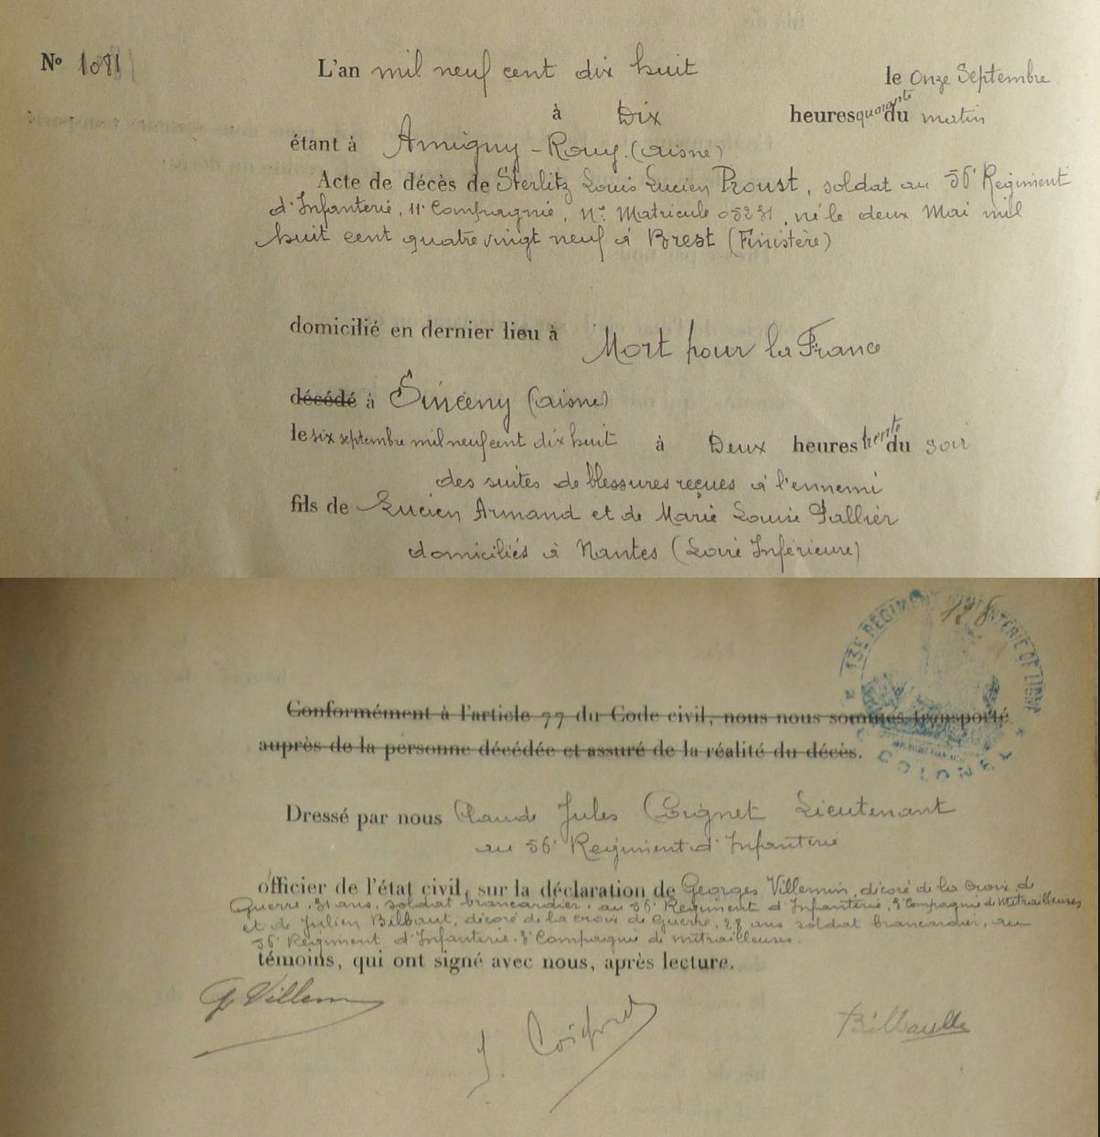 N° 1081
L'an mil neuf cent dix huit le onze Septembre
à Dix heures quarante du matin
étant à Amigny-Rouy (Aisne)
Acte de décès de Sterlitz Louis Lucien Proust, soldat au 56e Régiment
d'Infanterie, 11e Compagnie, N° Matricule 05231, né le deux Mai mil
huit cent quatre vingt neuf à Brest (Finistère)
domicilié en dernier lieu à Mort pour la France
décédé à Sinceny (Aisne)
le six septembre mil neuf cent dix huit à Deux heures trente du soir
des suites de blessures reçues à l'ennemi
fils de Lucien Armand et de Marie Louise Pallier
domiciliés à Nantes (Loire Inférieure)
128
Conformément à l'article 77 du Code civil, nous nous sommes transporté
auprès de la personne décédée et assuré de la réalité du décès.
Dressé par nous Claude Jules Coignet Lieutenant
au 56e Régiment d'Infanterie
officier de l'état civil, sur la déclaration de Georges Villemin, décoré de la croix de
Guerre, 31 ans, soldat brancardier, au 56e Régiment d'Infanterie, 3e Compagnie de Mitrailleuses
et de Julien Bilbaut, décoré de la croix de Guerre, 28 ans soldat brancardier, au
56e Régiment d'Infanterie. 3e Compagnie de mitrailleuses.
témoins, qui ont signé avec nous, après lecture.
G Villemin
J. Coignet